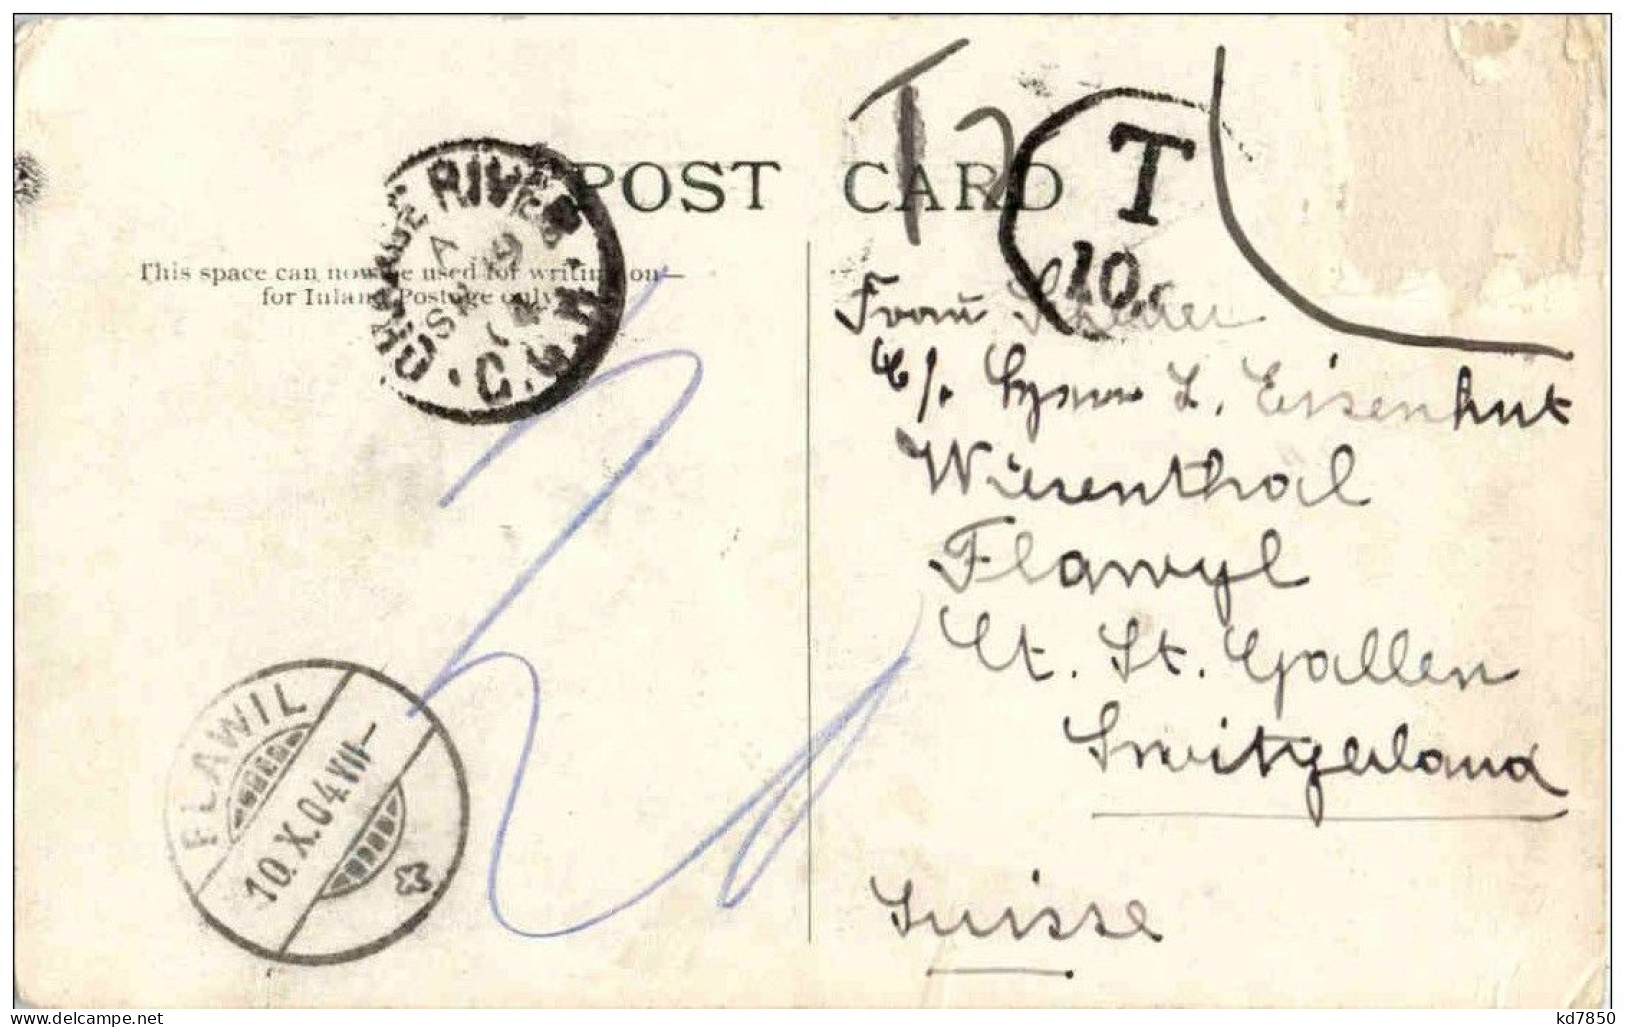 POST CARD
This space can now be used for writing on—
for Inland Postage only.
ORANGE RIVER
A
SP 19
04
C.G.H.
T
T
10.
Frau
C/o. L. Eisenhut
Wiesenthal
Flawyl
Ct. St. Gallen
Switzerland
Suisse
FLAWIL
10.X.04.VII—
delcampe.net
kd7850